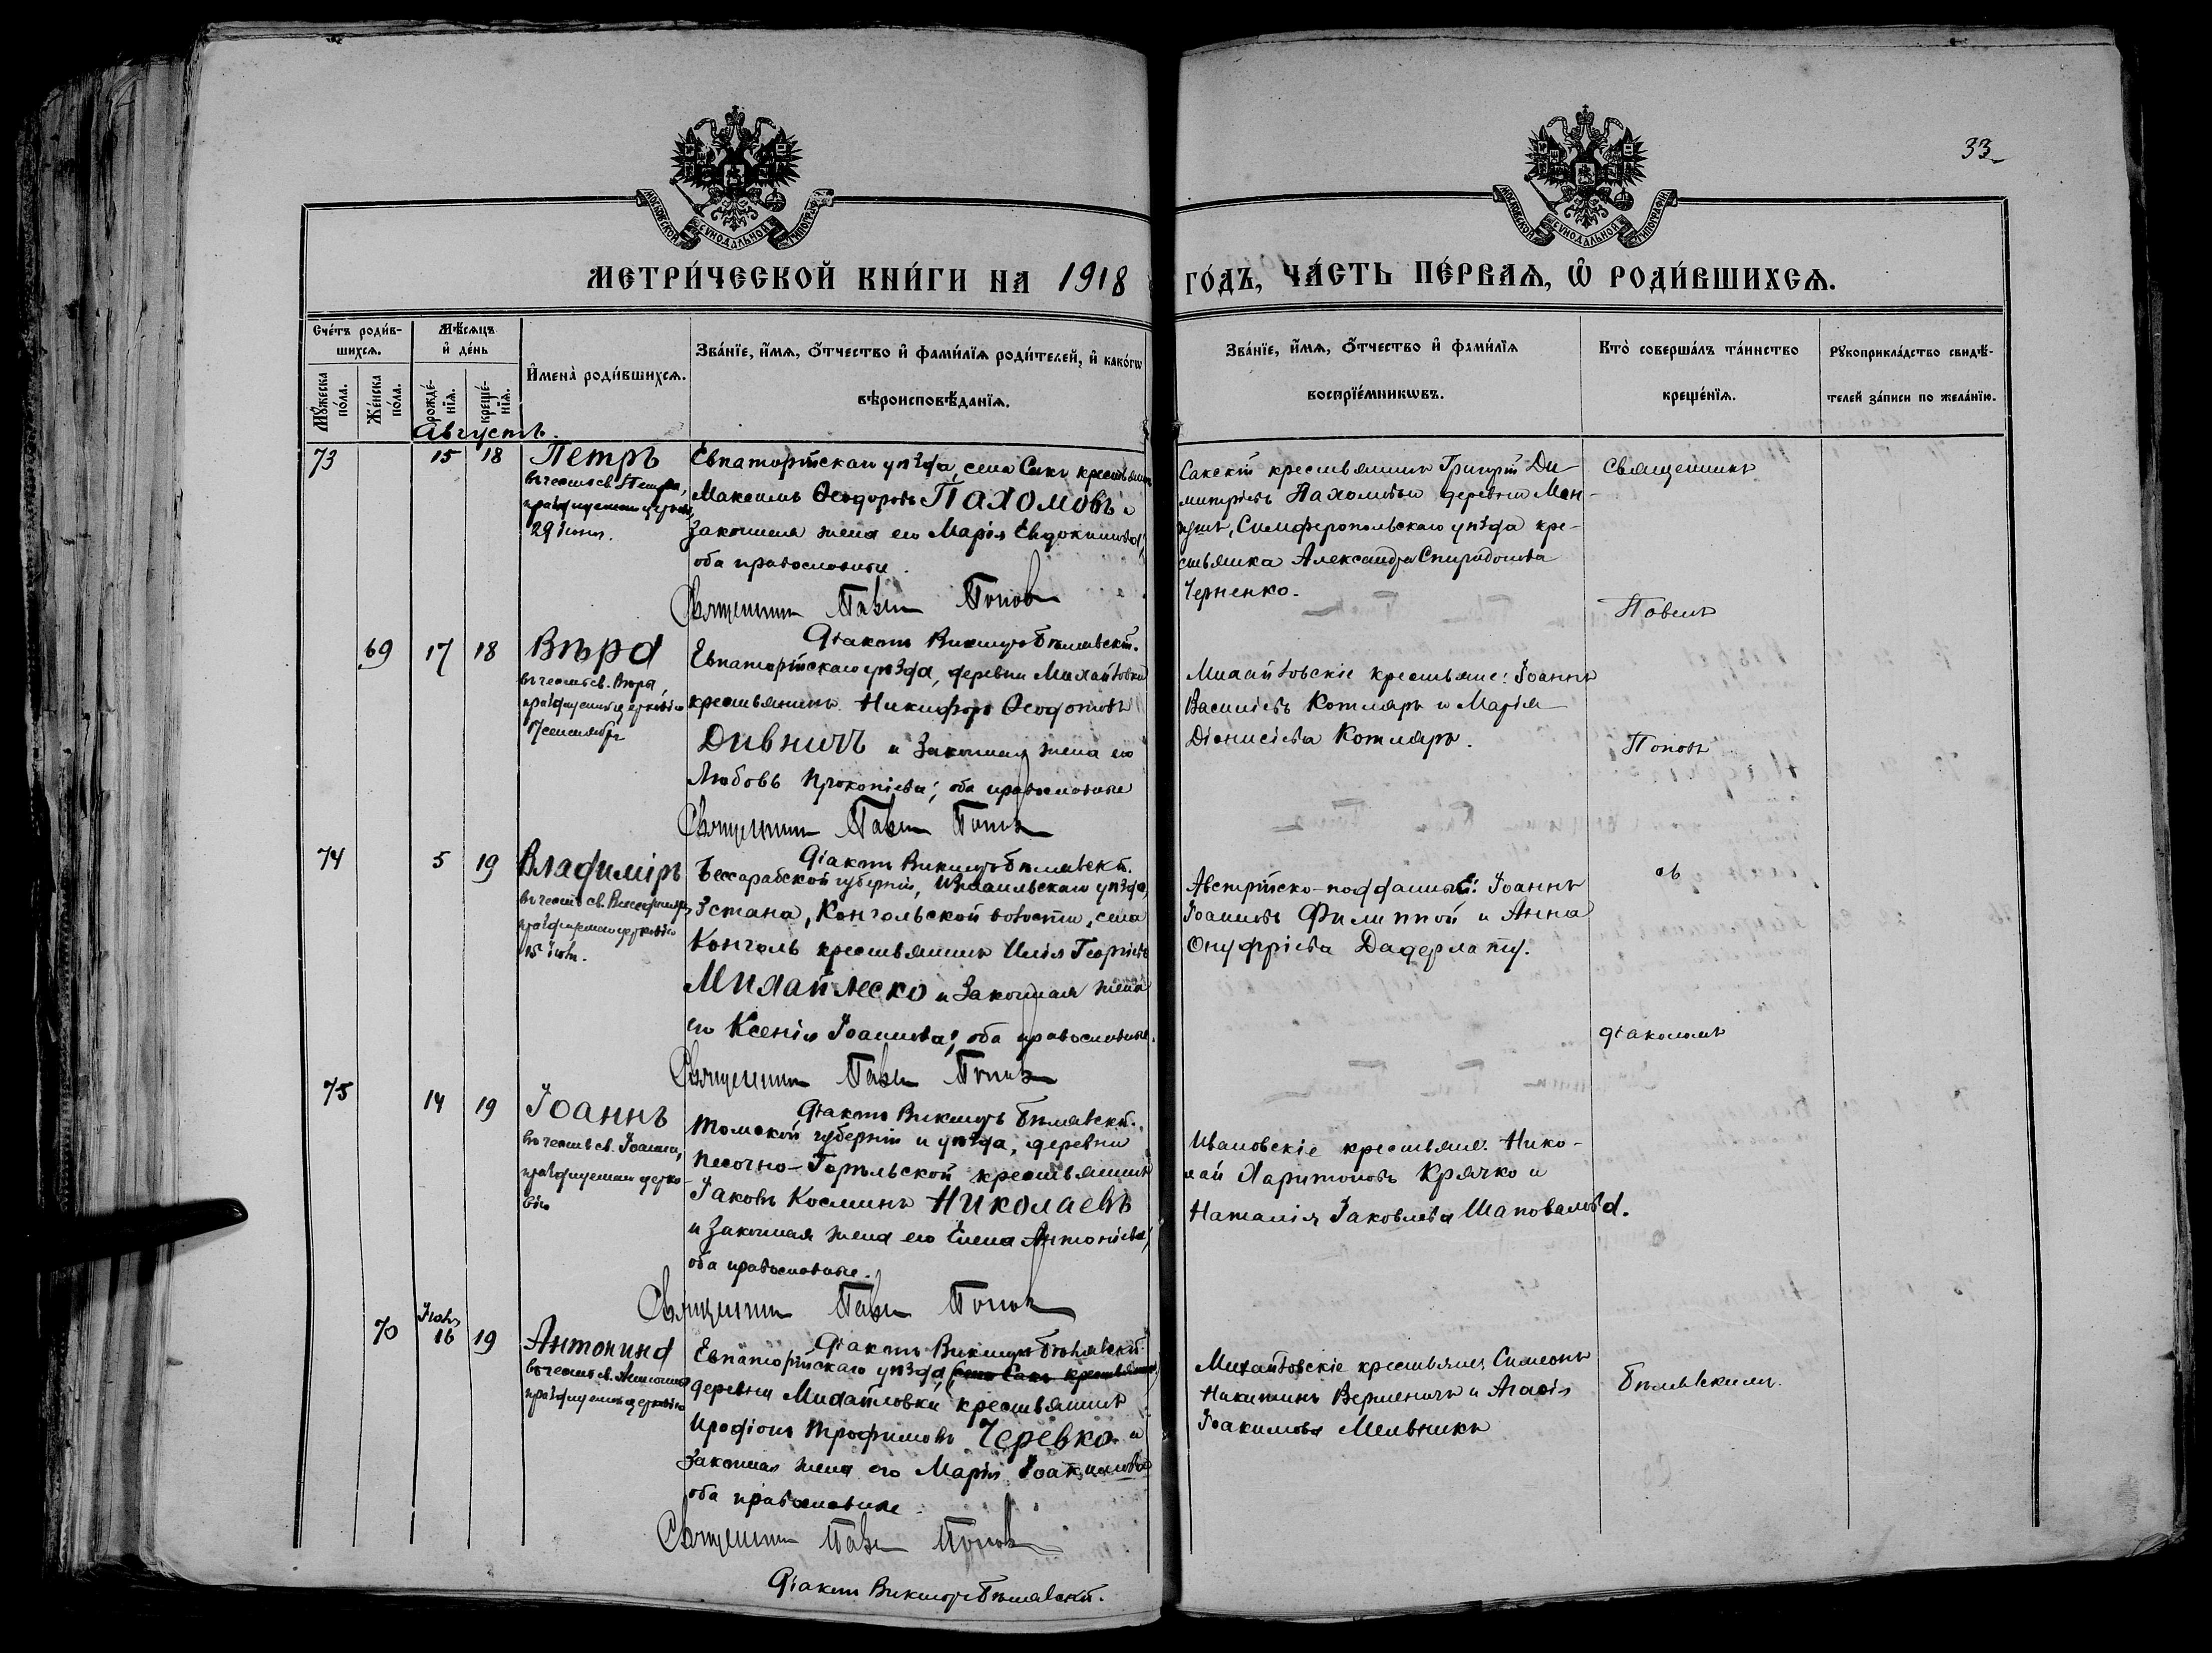 МОСКОВСКОЙ СѴНОДАЛЬНОЙ ТИПОГРАФІИ
МОСКОВСКОЙ СѴНОДАЛЬНОЙ ТИПОГРАФІИ
33
МЕТРИ́ЧЕСКОЙ КНИ́ГИ НА 1918 ГО́ДЪ, ЧА́СТЬ ПЕ́РВАѦ, Ѡ҆ РОДИ́ВШИХСѦ.
Сче́тъ роди́в-
шихсѧ.
Мꙋ́жеска по́ла.
Же́нска по́ла.
Мѣ́сѧцъ
и҆ де́нь
рожде́-
нїѧ.
креще́-
нїѧ.
И҆мена̀ роди́вшихсѧ.
Зва́нїе, и҆́мѧ, ѻ҆́тчество и҆ фами́лїѧ роди́телей, и҆ како́гѡ
вѣроисповѣ́данїѧ.
Зва́нїе, и҆́мѧ, ѻ҆́тчество и҆ фами́лїѧ
воспрїе́мникѡвъ.
Кто̀ соверша́лъ та́инство
креще́нїѧ.
Рꙋкоприкла́дство свидѣ́-
телей за́писи по жела́нїю.
Августъ.
73 15 18 Петръ
въ честь св. Петра,
празднуемаго церковію
29 іюня.
Евпаторійскаго уѣзда, села Саки крестьянинъ
Максимъ Ѳеодоровъ Пахомовъ и
законная жена его Марія Евдокимова,
оба православные.
Священникъ Павелъ Поповъ
Діаконъ Викторъ Бѣлявскій.
Сакскій крестьянинъ Григорій Ди-
митріевъ Пахомовъ и деревни Ман-
гушъ, Симферопольскаго уѣзда кре-
стьянка Александра Спиридонова
Черненко.
Священникъ
Павелъ
69 17 18 Вѣра
въ честь св. Вѣры,
празднуемой церковію
17 сентября
Евпаторійскаго уѣзда, деревни Михайловки
крестьянинъ Никифоръ Ѳеодотовъ
Дивничъ и законная жена его
Любовь Прокопіева, оба православные
Священникъ Павелъ Поповъ
Діаконъ Викторъ Бѣлявскій.
Михайловскіе крестьяне: Іоаннъ
Василіевъ Котляръ и Марія
Діонисіева Котляръ.
Поповъ
74 5 19 Владиміръ
въ честь св. Владиміра,
празднуемаго церковію
15 іюля.
Бессарабской губерніи, Измаильскаго уѣзда,
3 стана, Конгольской волости, села
Конголь крестьянинъ Илія Георгіевъ
Михайлеско и законная жена
его Ксенія Іоаннова, оба православные.
Священникъ Павелъ Поповъ
Діаконъ Викторъ Бѣлявскій.
Австрійско-подданные: Іоаннъ
Іоанновъ Филиппой и Анна
Онуфріева Дадерлату.
съ
діакономъ
75 14 19 Іоаннъ
въ честь св. Іоанна,
празднуемаго церко-
вію
Томской губерніи и уѣзда, деревни
Песочно-Горѣльской крестьянинъ
Іаковъ Косминъ Николаевъ
и законная жена его Елена Антоніева,
оба православные.
Священникъ Павелъ Поповъ
Діаконъ Викторъ Бѣлявскій.
Ивановскіе крестьяне: Нико-
лай Харитоновъ Крячко и
Наталія Іаковлева Шаповалова.
70 Іюль 16 19 Антонина
въ честь св. Антонины
празднуемой церковію
Евпаторійскаго уѣзда, (села Саки крестьянинъ)
деревни Михайловки крестьянинъ
Иродіонъ Трофимовъ Черевко и
законная жена его Марія Іоакимова
оба православные.
Священникъ Павелъ Поповъ
Діаконъ Викторъ Бѣлявскій.
Михайловскіе крестьяне Симеонъ
Никитинъ Верменичъ и Агафія
Іоакимова Мельникъ
Бѣлявскимъ.